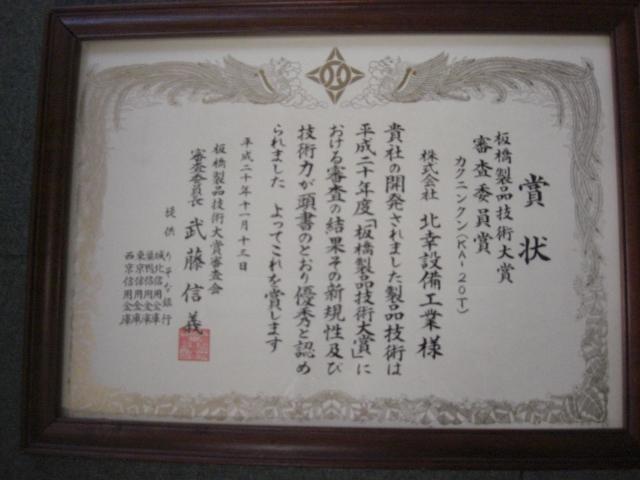 賞状
板橋製品技術大賞
審査委員賞
カクニンクン(KA-20T)
株式会社 北幸設備工業 様
貴社の開発されました製品技術は
平成二十年度「板橋製品技術大賞」に
おける審査の結果その新規性及び
技術力が頭書のとおり優秀と認め
られました よってこれを賞します
平成二十年十一月十三日
板橋製品技術大賞審査会
審査会長 武藤信義
提供
りそな銀行
城北信用金庫
巣鴨信用金庫
東京信用金庫
西京信用金庫